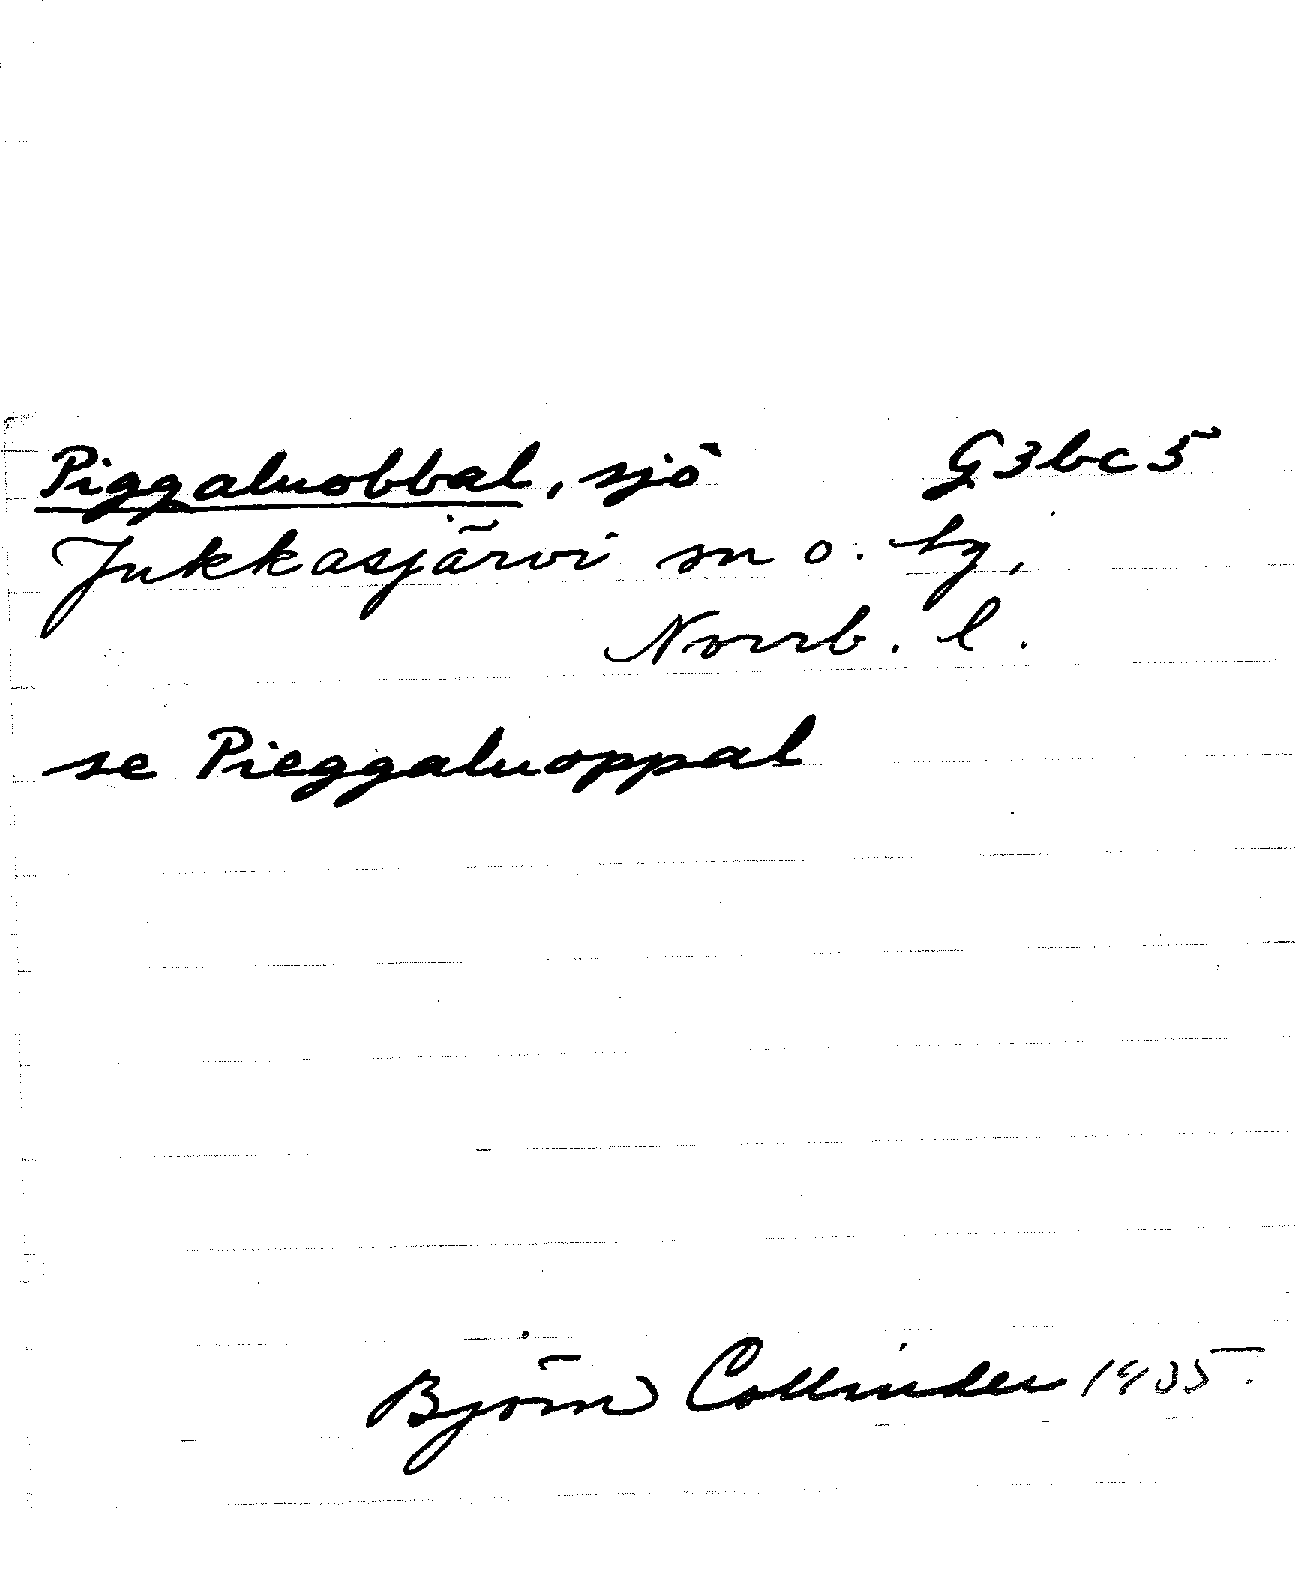 Piggaluobbal, sjö G3bc5
Jukkasjärvi sn o. tg,
Norrb. l.
se Pieggaluoppal
Björn Collinder 1935.